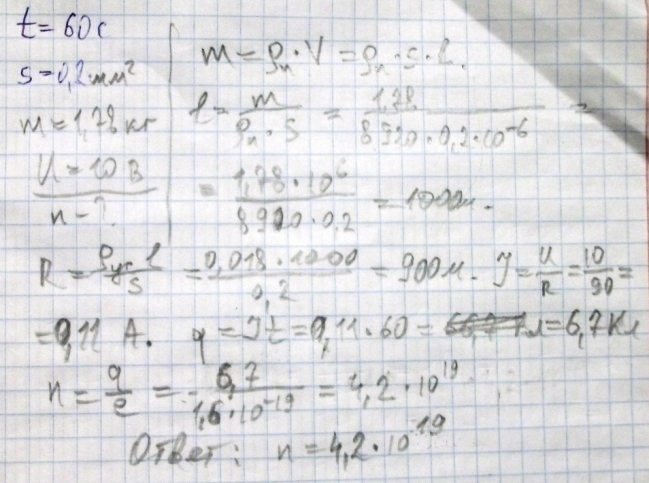 t = 60 с
s = 0,2 мм²
m = 1,78 кг
U = 10 В
n - ?
m = ρₙ · V = ρₙ · s · l.
l = m / (ρₙ · s) = 1,78 / (8920 · 0,2 · 10⁻⁶) =
= 1,78 · 10⁶ / (8920 · 0,2) = 1000 м.
R = ρуд l / s = 0,018 · 1000 / 0,2 = 90 Ом. J = U / R = 10 / 90 =
= 0,11 А. q = Jt = 0,11 · 60 = Кл = 6,7 Кл
n = q / e = 6,7 / (1,6 · 10⁻¹⁹) = 4,2 · 10¹⁹
Ответ: n = 4,2 · 10¹⁹